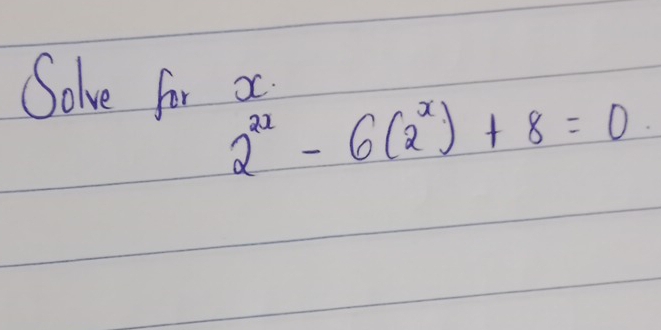 Solve for x.
2^{2x} - 6(2^x) + 8 = 0.